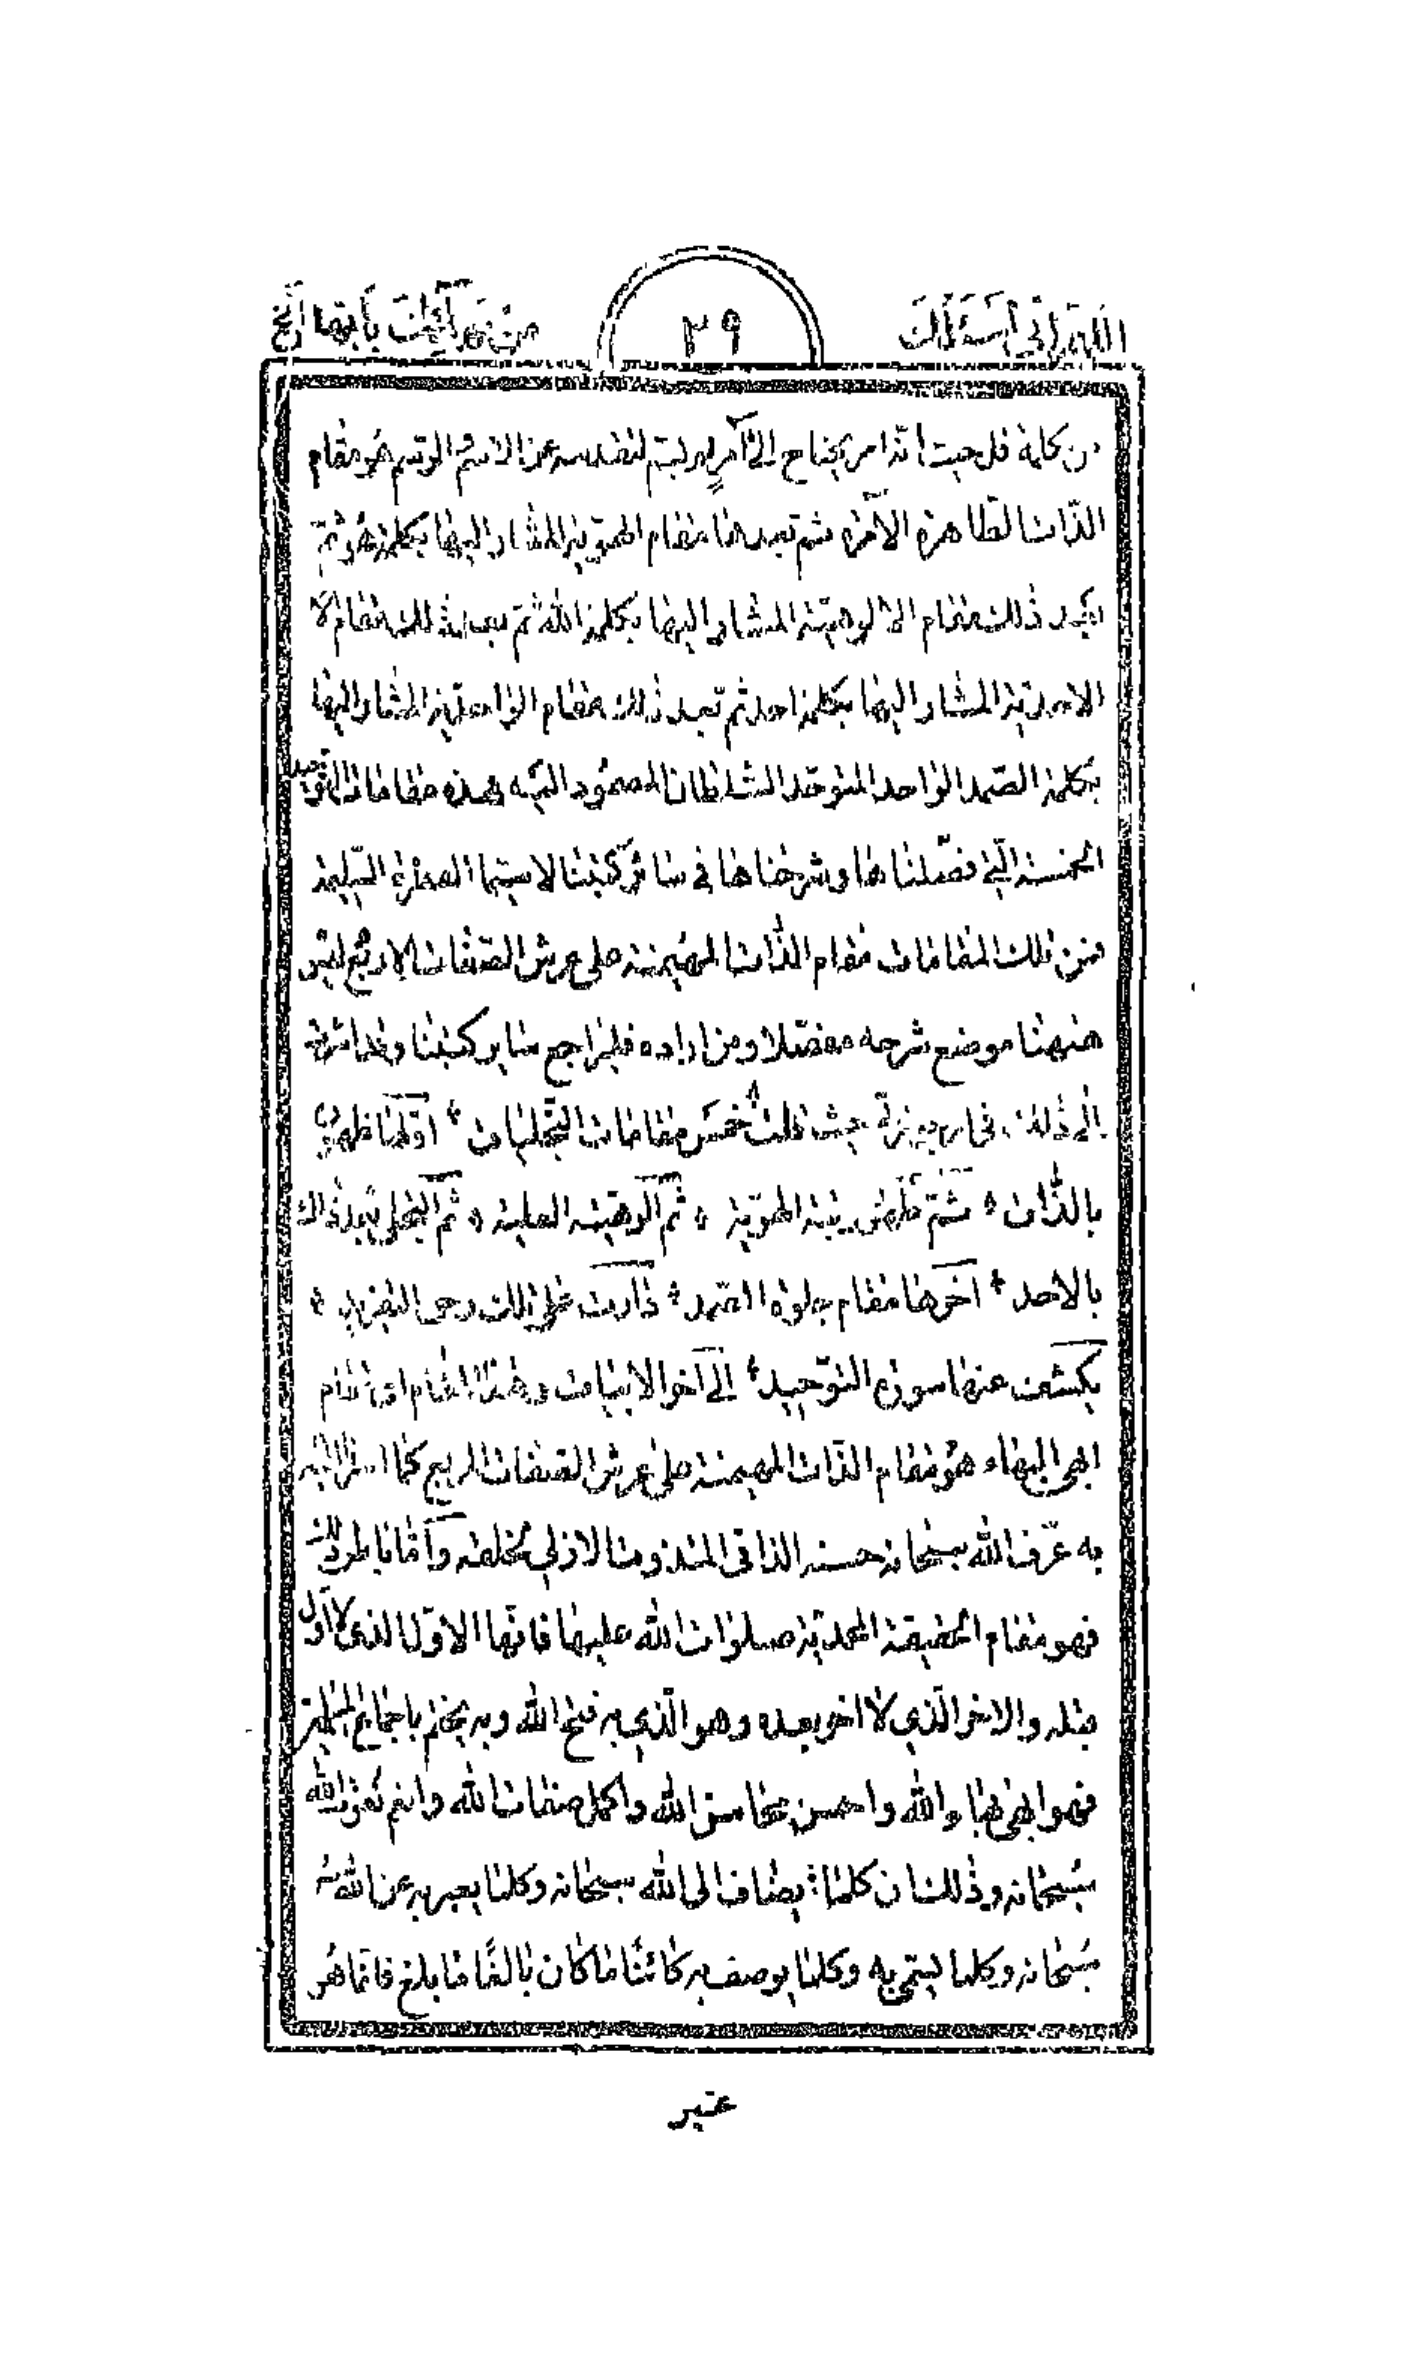 اللهم اني اسئلك
٢٩
من بهائك بأبهاه الخ
من كلمة قل حيث انه امر يحتاج الى آمر لتقدسه عن الاسم الوسم هو مقام
الذات الظاهرة الآمرة ثم بعدها مقام الهوية المشار اليها بكلمة هو ثم
بعد ذلك مقام الالوهية المشار اليها بكلمة الله ثم بعد ذلك مقام الا
الاحدية المشار اليها بكلمة احد ثم بعد ذلك مقام الواحدية المشار اليها
بكلمة الصمد الواحد المتوحد السلطان المصمود اليه فهذه مقامات التوحيد
الخمسة التي فصلناها وشرحناها في سائر كتبنا لا سيما
فمن تلك المقامات مقام الذات المهيمنة على عرش الصفات الاربع ليس
هنهنا موضع شرحه مفصلا ومن اراده فليراجع سائر كتبنا وقد اشرت
الى ذلك في ارجوزة حيث قلت خمس مقامات التجليات * اولها ظهوره
بالذات * ثم ظهور رتبة الهوية * ثم الوهية العلية * ثم التجلي بعد ذاك
بالاحد * آخرها مقام جلوة الصمد * دارت على تلك رحى التفريد *
يكشف عنها سورة التوحيد * الى آخر الابيات وهذا المقام اي مقام
ابهى البهاء هو مقام الذات المهيمنة على عرش الصفات الاربع كما اشرنا اليه
به عرف الله سبحانه حسنه الذاتي لخلقه وأما باطن ذلك
فهو مقام الحقيقة المحمدية صلوات الله عليها فانها الاول الذي لا اول
قبله والاخر الذي لا اخر بعده وهو الذي به فتح الله وبه يختم
فهو ابهى بهاء الله واحسن محاسن الله واكمل صفات الله واتم نعوت الله
سبحانه وذلك ان كلما يضاف الى الله سبحانه وكلما يعبر به عن الله
سبحانه وكلما يسمى به وكلما يوصف به كائنا ما كان بالغا ما بلغ فانما هو
عنبر